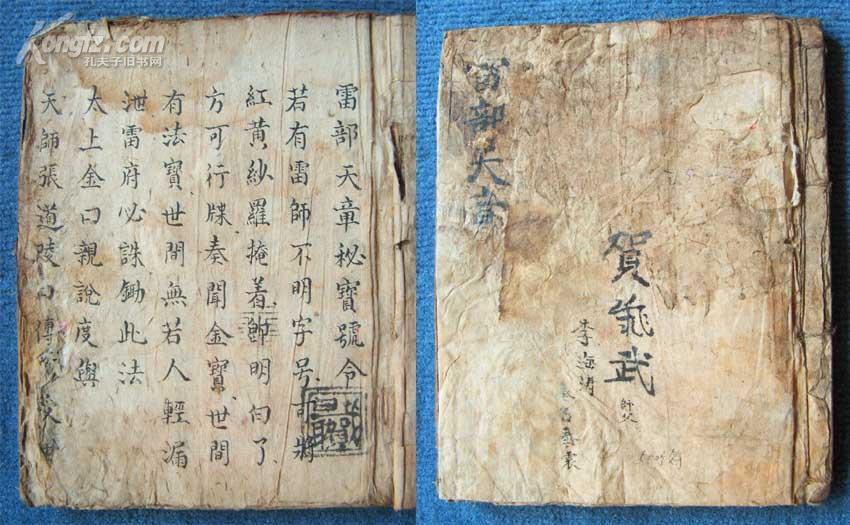 Kongfz.com
孔夫子旧书网
雷部天章秘寶號令
若有雷師不明字号可將
紅黄紗羅掩着師明白了
方可行牒奏聞金寶世間
有法寶世間無若人輕漏
泄雷府必誅鋤此法
太上金口親說度與
天師張道陵口傳
雷部天章
賀
武
師父
李海清